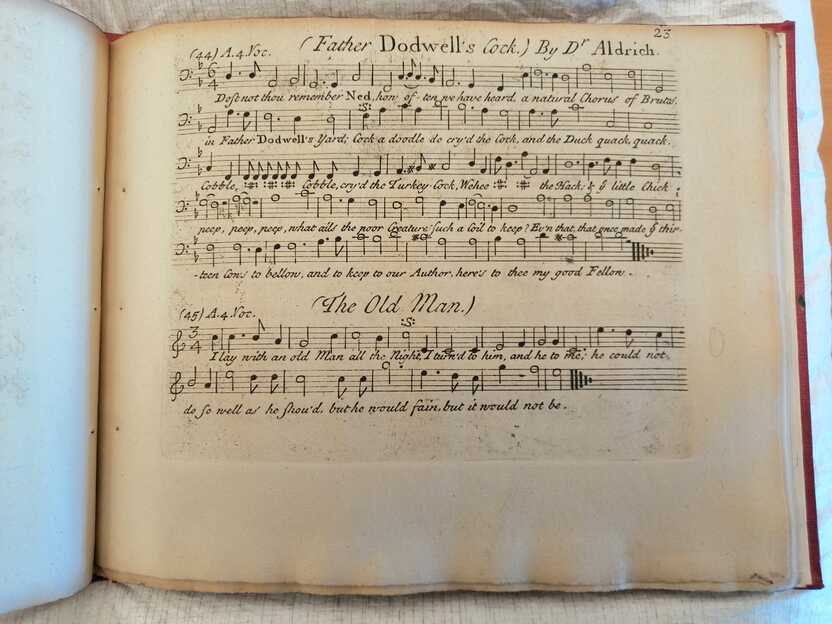 23
(44) A. 4. Voc. (Father Dodwell's Cock.) By Dr Aldrich.
6 4
Dost not thou remember Ned, how of-ten we have heard, a natural Chorus of Brutes.
:S:
in Father Dodwell's Yard; Cock a doodle do cry'd the Cock, and the Duck quack, quack.
Cobble, :||: :||: :||: Cobble, cry'd the Turkey-Cock, Wehee :||: :||: the Hack; & ye little Chick
peep, peep, peep, what ails the poor Creature such a Coil to keep? Ev'n that, that once made ye thir-
-teen Cons to bellow, and to keep to our Author, here's to thee my good Fellow.
(45) A. 4. Voc. (The Old Man.)
3 4
:S:
I lay with an old Man all the Night, I turn'd to him, and he to me; he could not
do so well as he shou'd, but he would fain, but it would not be.